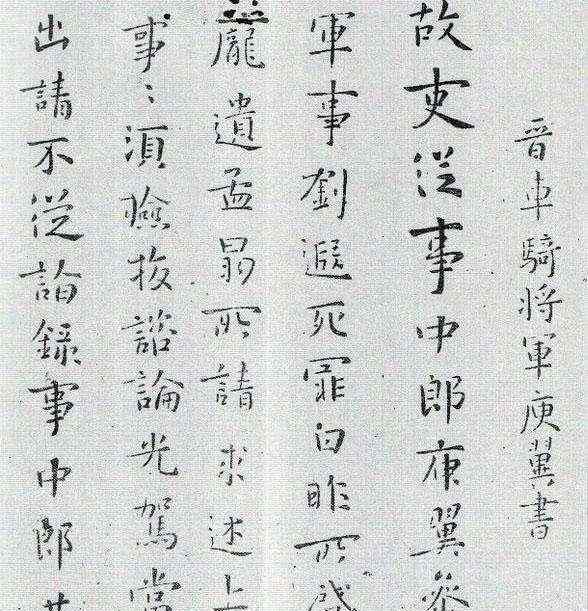 晉車騎將軍庾翼書
故吏從事中郎庾翼參
軍事劉遐死罪白昨所
龐遺孟昌所請求述上
事〻須檢校諮論光駕當
出請不從論錄事中郎